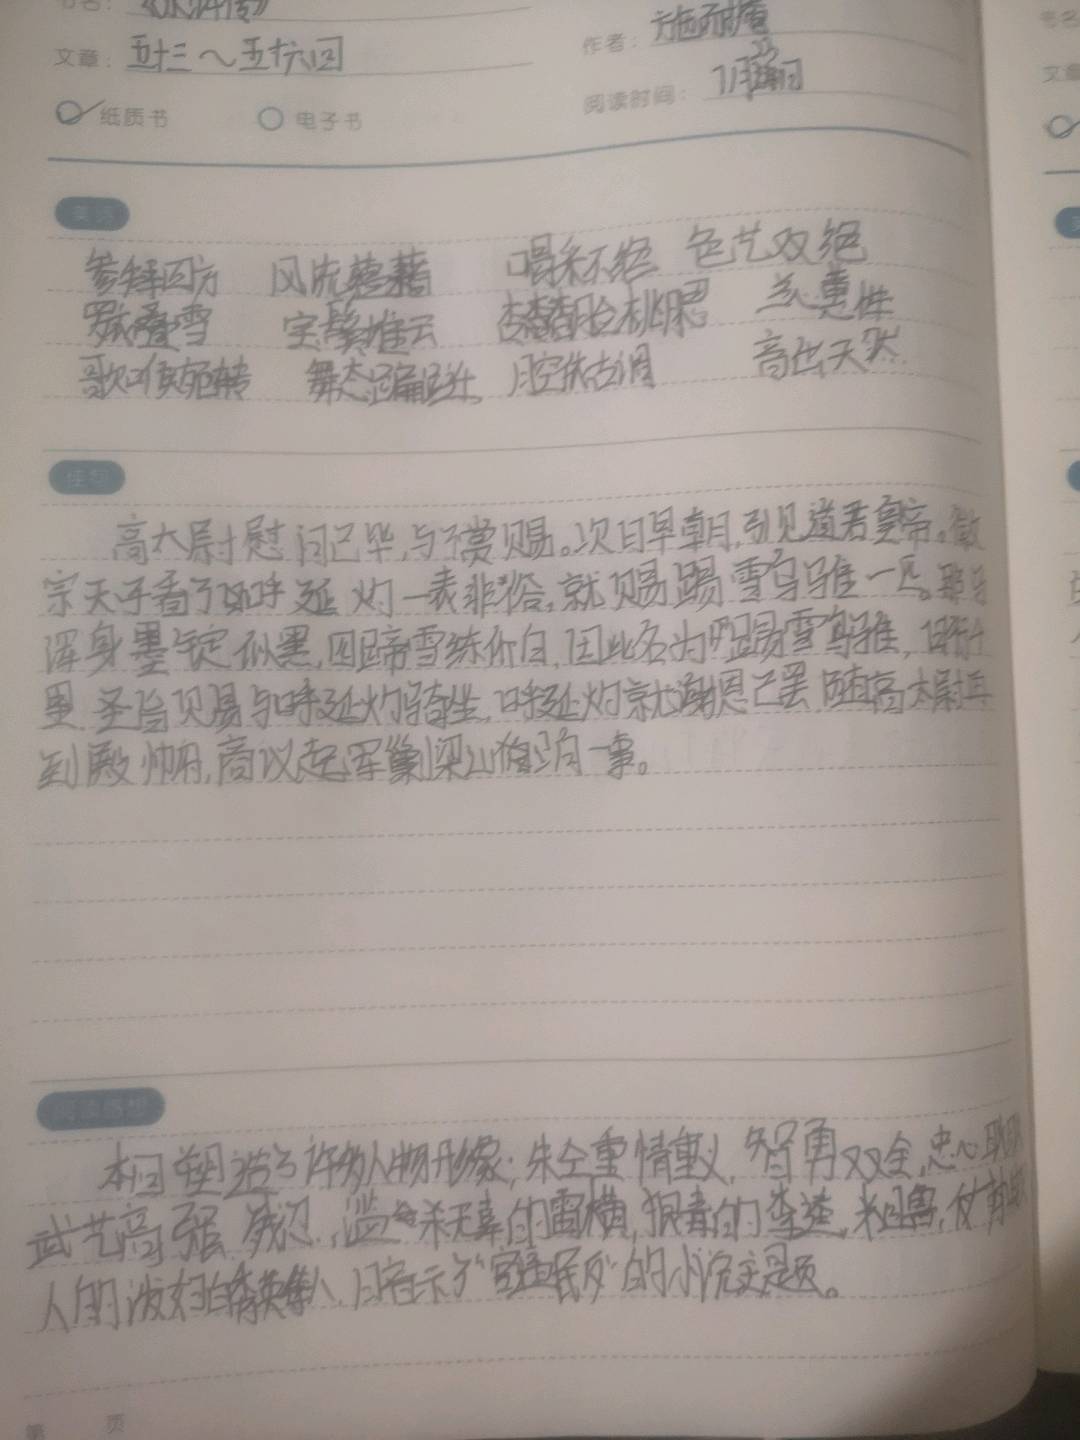 书名：《水浒传》
文章：五十三～五十六回
作者：施耐庵
阅读时间：7月
纸质书 电子书
美词
参拜四方 风流蕴藉 喝采不绝 色艺双绝
罗衣叠雪 宝髻堆云 杏脸桃腮 兰心蕙性
歌喉宛转 舞态蹁跹 腔依古调 高出天然
佳句
高太尉慰问已毕，与了赏赐。次日早朝，引见道君皇帝。徽
宗天子看了呼延灼一表非俗，就赐踢雪乌骓一匹。那马
浑身墨锭似黑，四蹄雪练价白，因此名为“踢雪乌骓，日行千
里 圣旨赐与呼延灼骑坐，呼延灼就谢恩已罢 随高太尉再
到殿帅府，商议起军剿梁山泊一事。
阅读感想
本回塑造了许多人物形象；朱仝重情重义，智勇双全，忠心耿耿
武艺高强 残忍，滥杀无辜的雷横，狠毒的李逵，粗鲁，仗势欺
人的泼妇白秀英等人，暗示了“官逼民反”的小说主题。
第 页